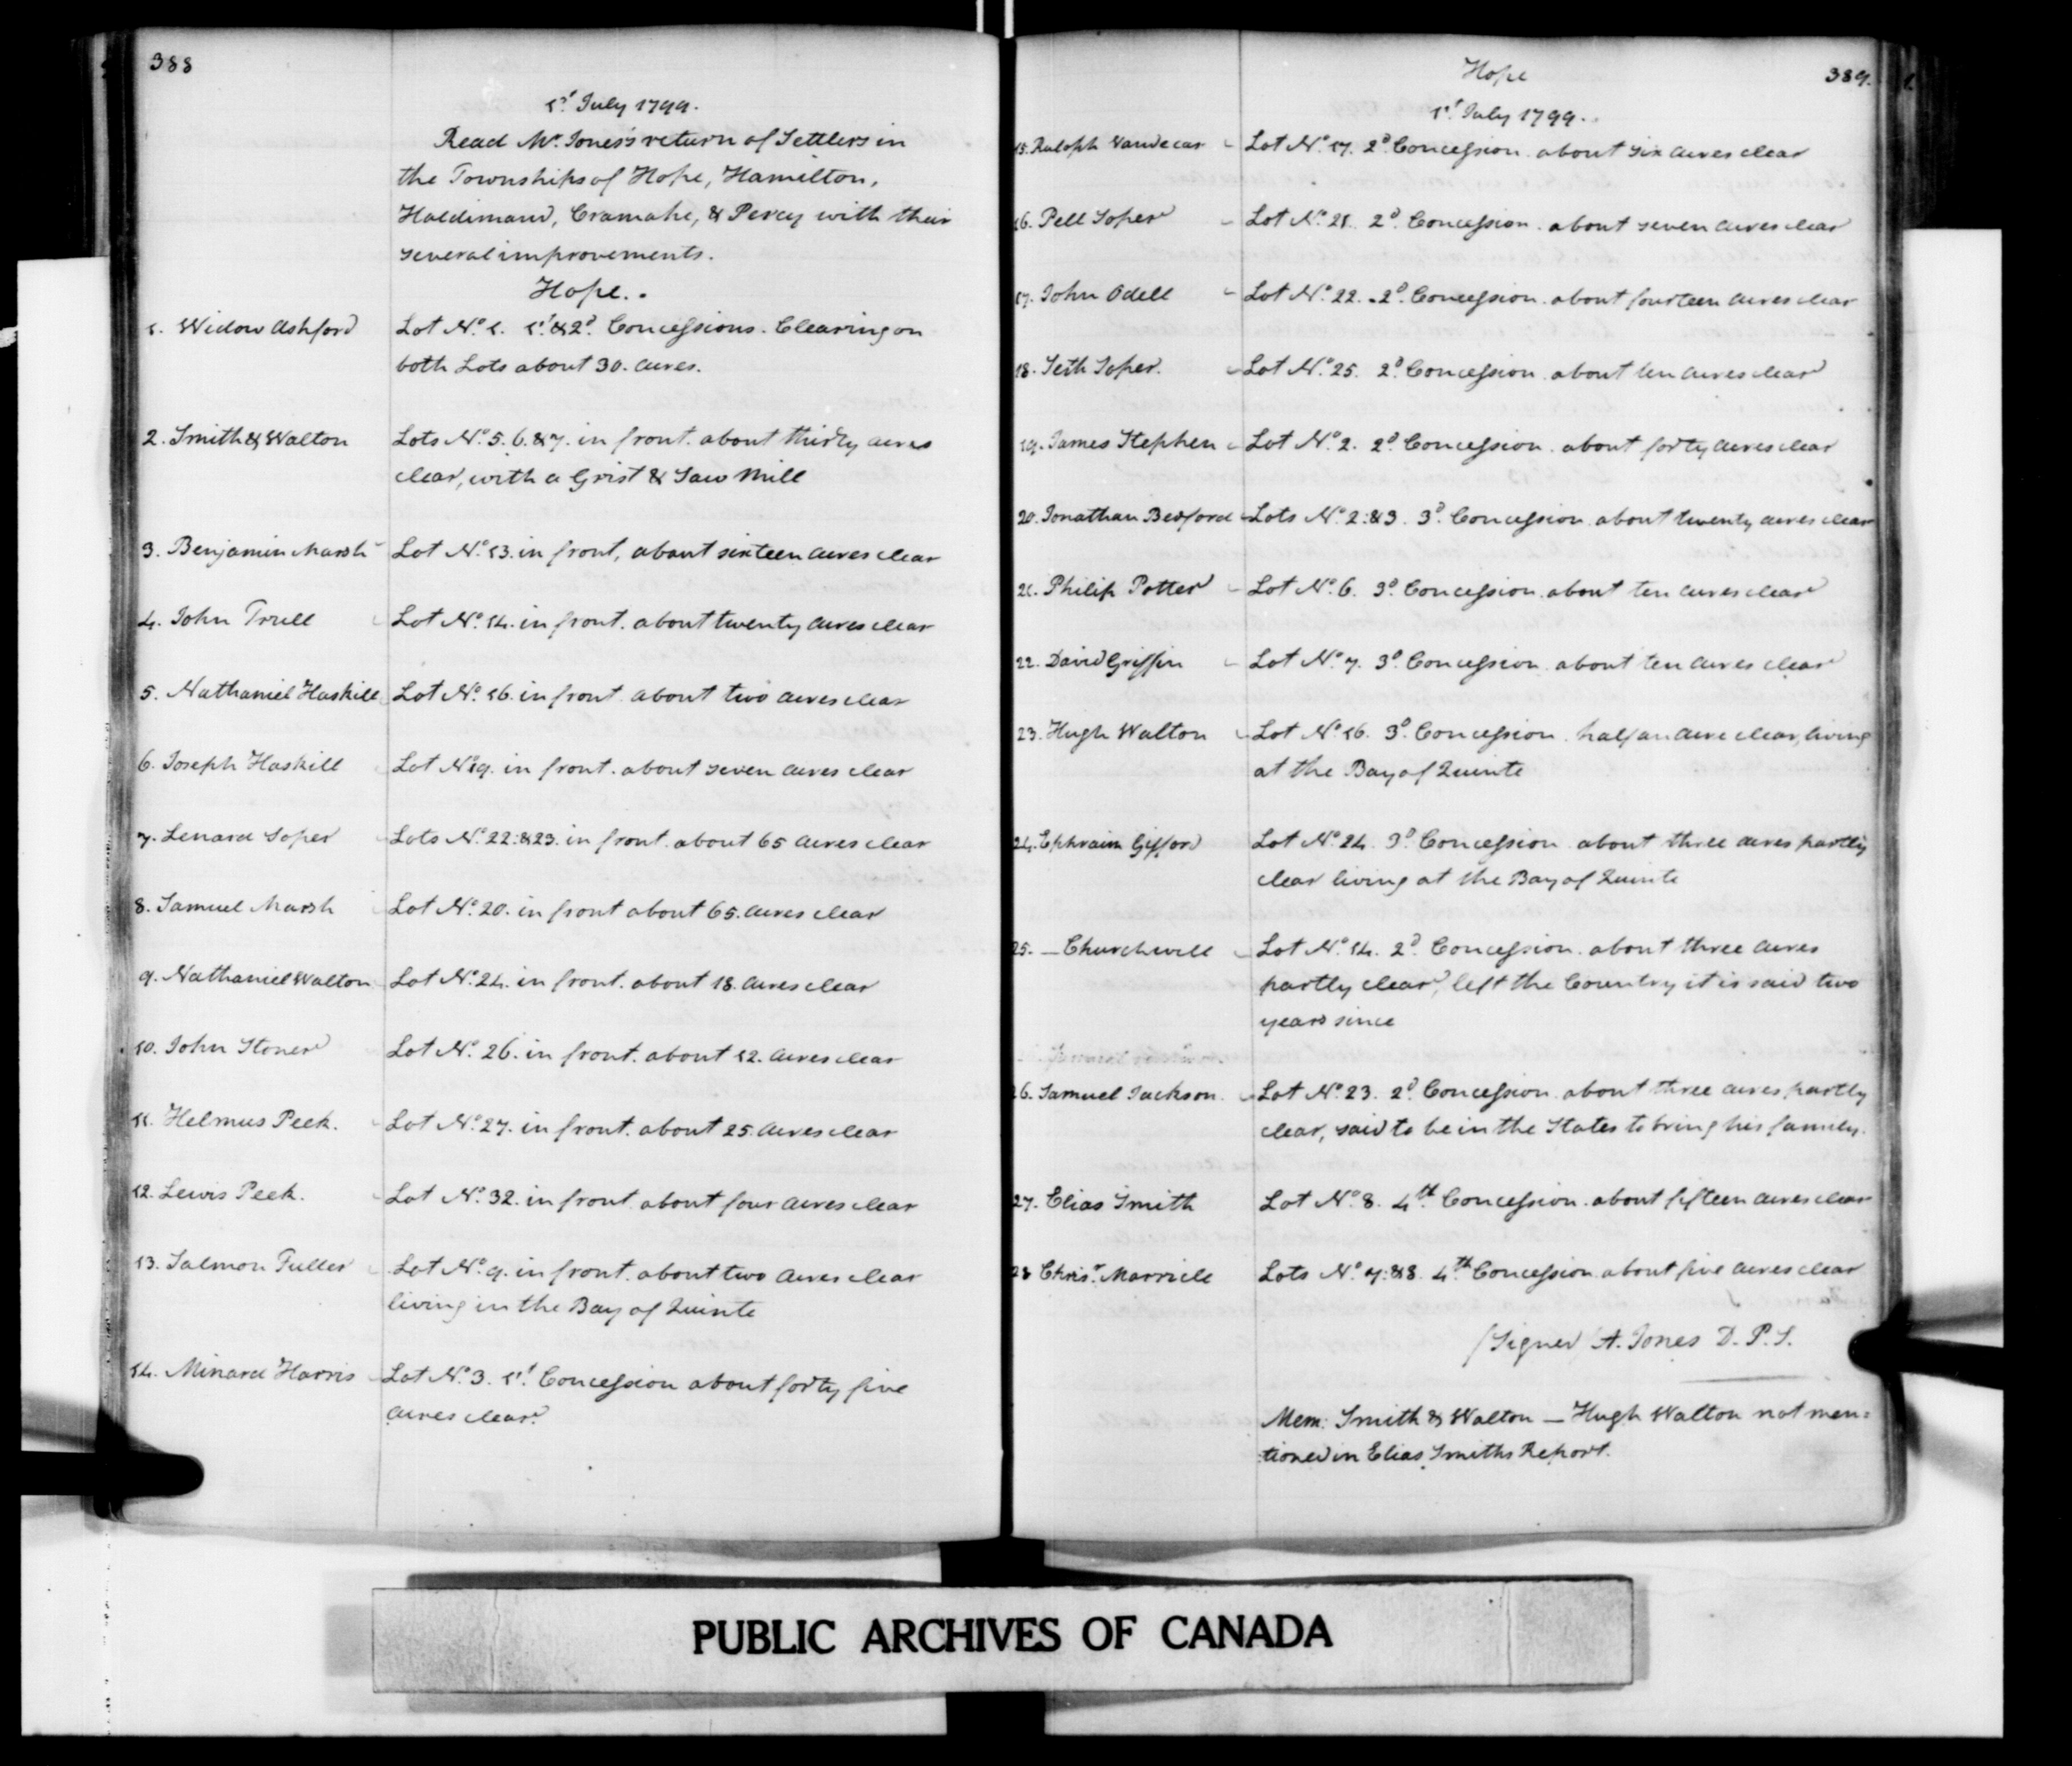 388
1st July 1799.
Read Mr. Jones's return of Settlers in
the Townships of Hope, Hamilton,
Haldimand, Cramahe, & Percy with their
several improvements.
Hope.
1. Widow Ashford Lot No. 1. 1st & 2d. Concessions. Clearing on
both Lots about 30. acres.
2. Smith & Walton Lots No. 5. 6. & 7. in front. about thirty acres
clear, with a Grist & Saw Mill
3. Benjamin Marsh Lot No. 13. in front, about sixteen acres clear
4. John Trull Lot No. 14. in front. about twenty acres clear
5. Nathaniel Haskill Lot No. 16. in front. about two acres clear
6. Joseph Haskill Lot No. 19. in front. about seven acres clear
7. Lenard Soper Lots No. 22. & 23. in front. about 65 acres clear
8. Samuel Marsh Lot No. 20. in front about 65. acres clear
9. Nathaniel Walton Lot No. 24. in front. about 18. acres clear
10. John Stoner Lot No. 26. in front. about 12. acres clear
11. Helmus Peek. Lot No. 27. in front. about 25. acres clear
12. Lewis Peek. Lot No. 32. in front about four acres clear
13. Salmon Fuller Lot No. 9. in front. about two acres clear
living in the Bay of Quinte
14. Minard Harris Lot No. 3. 1st. Concession about forty five
acres clear.
Hope 389.
1st. July 1799.
15. Raloph Vandecar Lot No. 17. 2d. Concession. about six acres clear
16. Pell Soper Lot No. 21. 2d. Concession. about seven acres clear
17. John Odell Lot No. 22. 2d. Concession. about fourteen acres clear
18. Seth Soper. Lot No. 25. 2d. Concession. about ten acres clear
19. James Stephen Lot No. 2. 2d. Concession. about forty acres clear
20. Jonathan Bedford Lots No. 2. & 3. 3d. Concession. about twenty acres clear
21. Philip Potter Lot No. 6. 3d. Concession. about ten acres clear
22. David Griffin Lot No. 7. 3d. Concession. about ten acres clear
23. Hugh Walton Lot No. 16. 3d. Concession. half an acre clear, living
at the Bay of Quinte
24. Ephraim Gifford Lot No. 24. 3d. Concession. about three acres partly
clear living at the Bay of Quinte
25. — Churchwell Lot No. 14. 2d. Concession. about three acres
partly clear, left the Country it is said two
years since
26. Samuel Jackson. Lot No. 23. 2d. Concession. about three acres partly
clear, said to be in the States to bring his family.
27. Elias Smith Lot No. 8. 4th. Concession. about fifteen acres clear
28 Chrisr. Marricle Lots No. 7. & 8. 4th. Concession. about five acres clear
(Signed) A. Jones D. P. S.
Mem: Smith & Walton — Hugh Walton not men=
tioned in Elias Smiths Report.
PUBLIC ARCHIVES OF CANADA